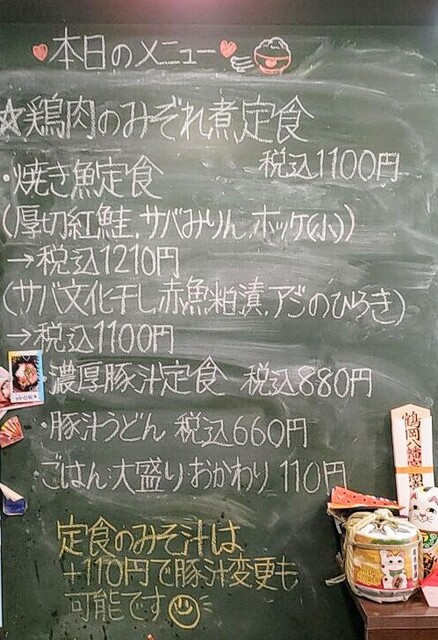 本日のメニュー
☆鶏肉のみぞれ煮定食
税込1100円
・焼き魚定食
(厚切紅鮭,サバみりん,ホッケ(小))
→税込1210円
(サバ文化干し,赤魚粕漬,アジのひらき)
→税込1100円
・濃厚豚汁定食 税込880円
・豚汁うどん 税込660円
・ごはん大盛りおかわり 110円
定食のみそ汁は
+110円で豚汁変更も
可能です
鶴岡八幡宮